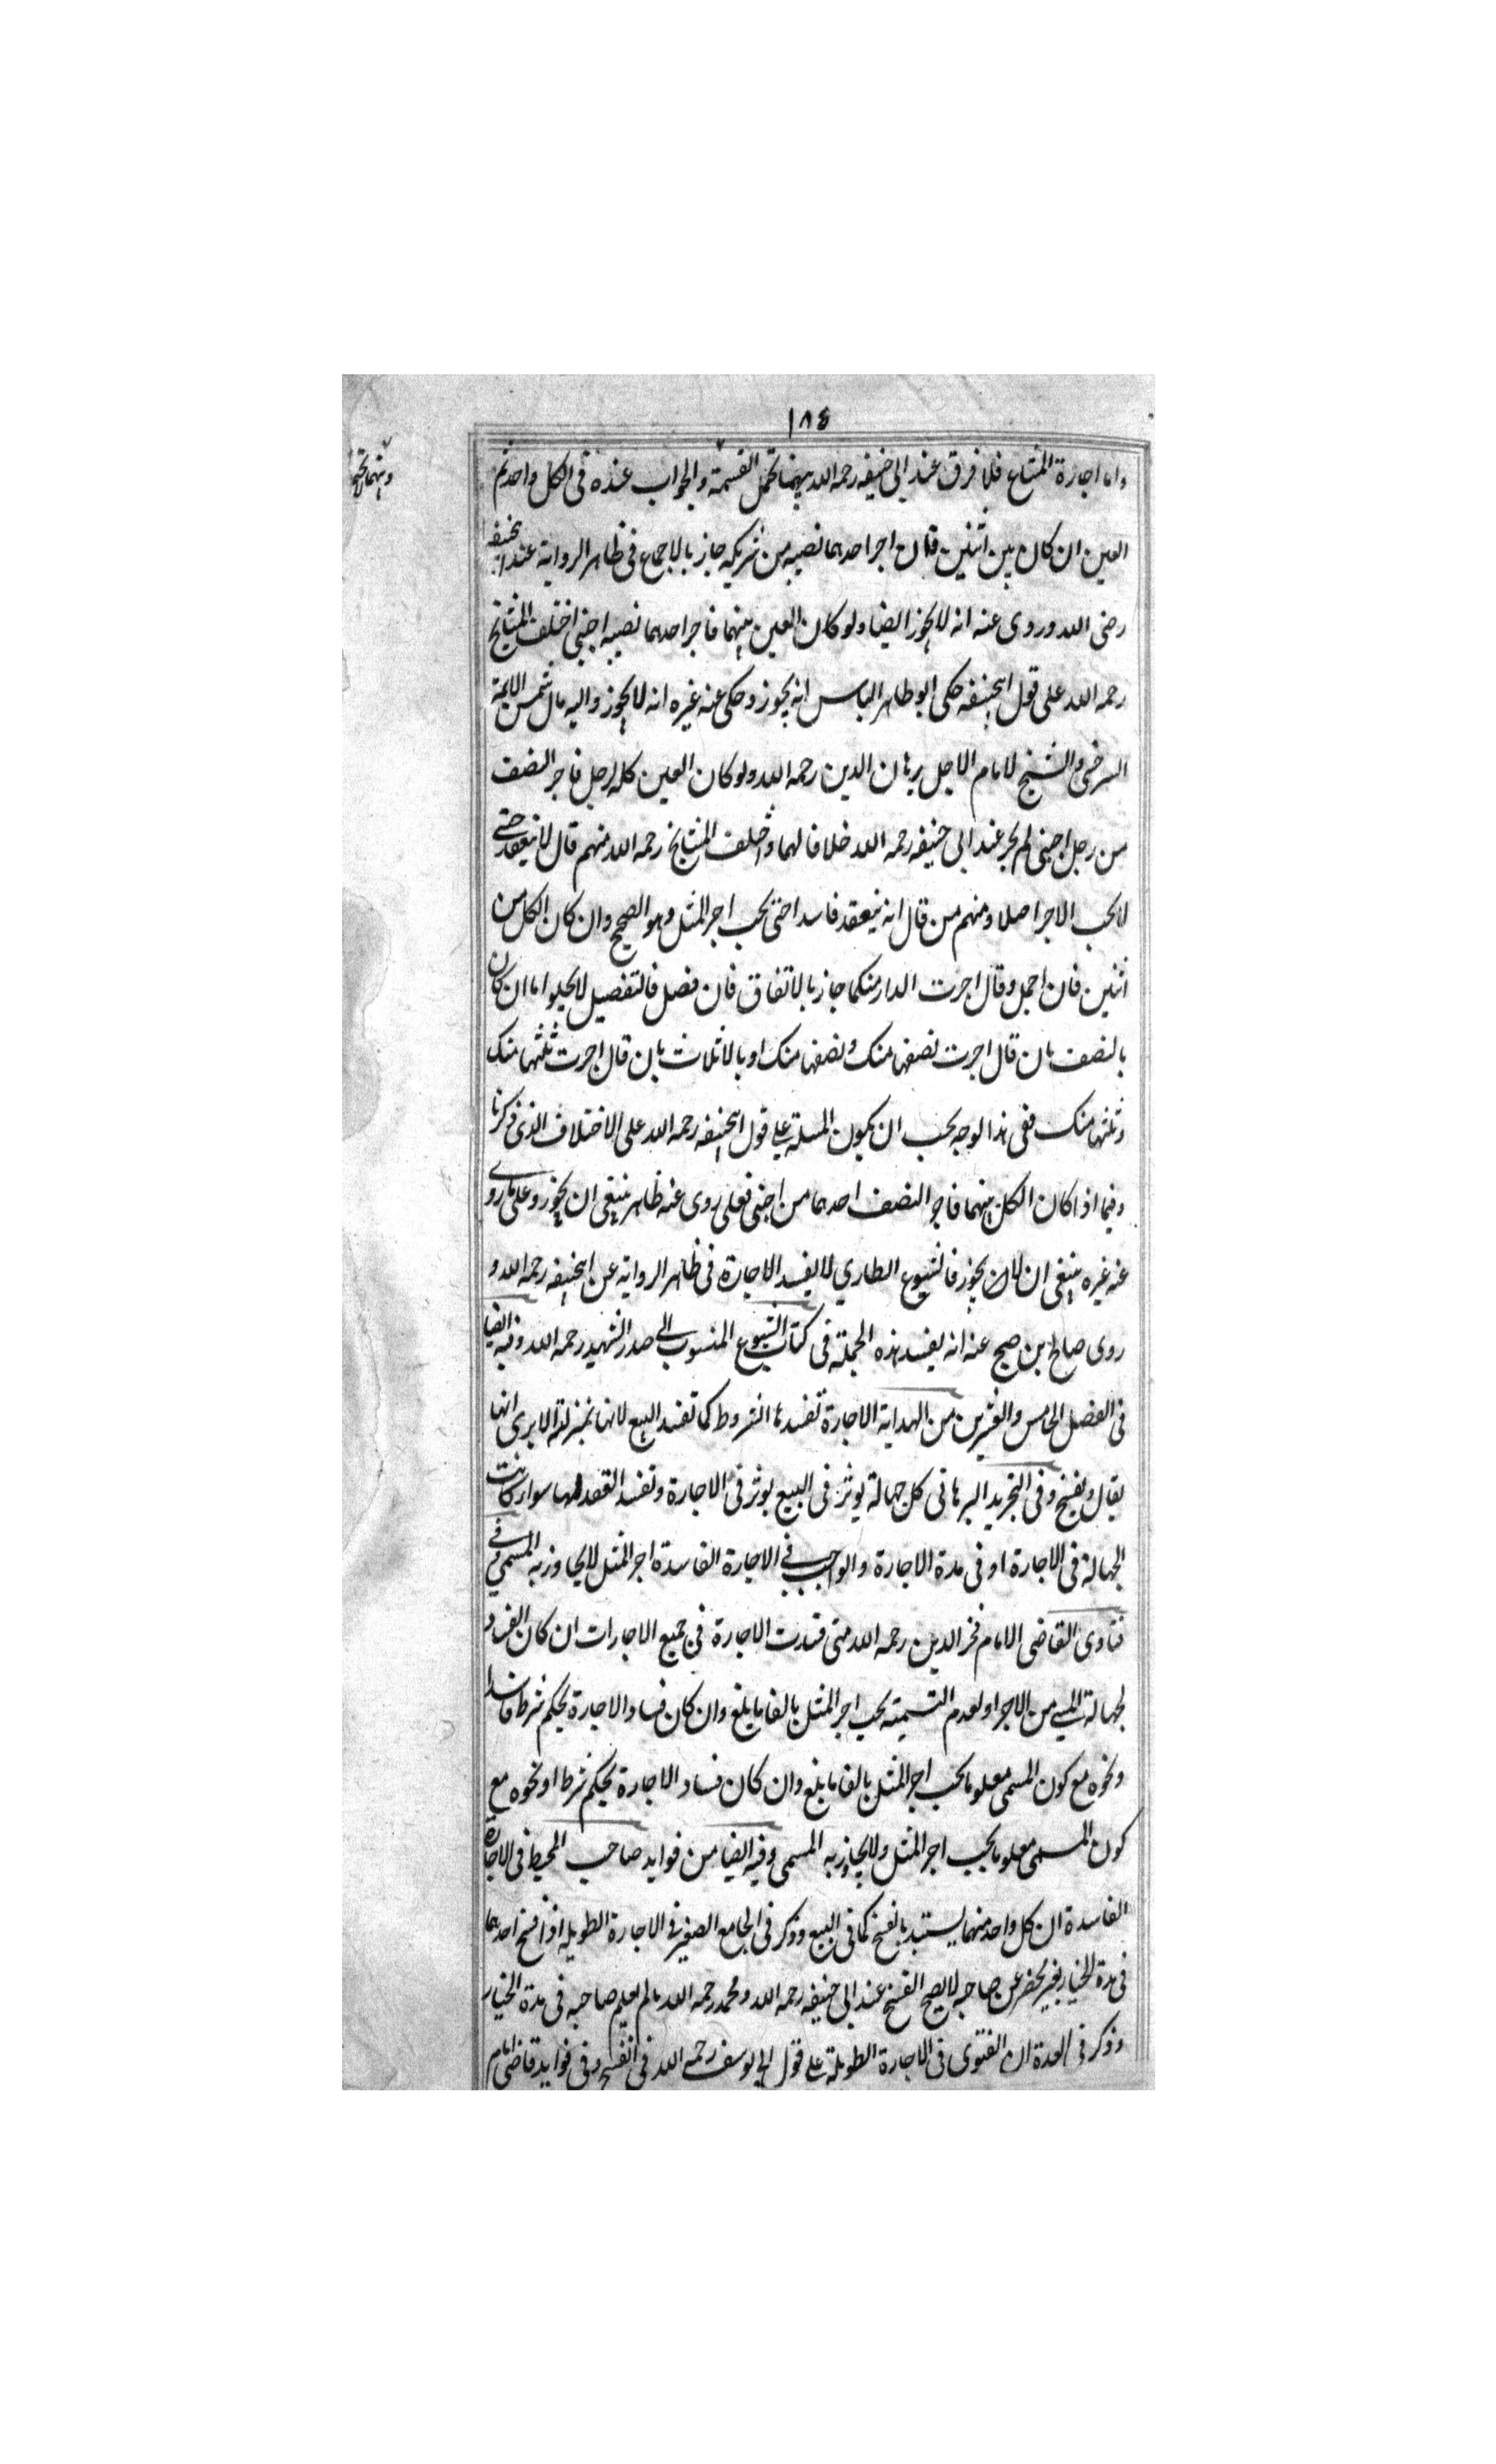 ١٨٤
واما اجارة المشاع فلا فرق عند ابى حنيفه رحمه الله بينما تحمل القسمة والجواب عنده فى الكل واحد ثم
العين ان كان بين اثنين فان اجر احدهما نصيبه من شريكه جاز بالاجماع فى ظاهر الرواية عند ابيحنيفه
رضى الله وروى عنه انه لا يجوز ايضا ولو كان العين بينهما فاجر احدهما نصيبه اجنبى اختلف المشايخ
رحمه الله على قول ابيحنيفه حكى ابو طاهر الباس انه يجوز وحكى عنه غيره انه لا يجوز واليه مال شمس الايمة
السرخسى والشيخ لامام الاجل برهان الدين رحمه الله ولو كان العين كله لرجل فاجر النصف
من رجل اجنبى لم يجز عند ابى حنيفه رحمه الله خلافا لهما واختلف المشايخ رحمه الله منهم قال لا ينعقد حتى
لا يجب الاجر اصلا ومنهم من قال انه ينعقد فاسدا حتى يجب اجر المثل وهو الصحيح وان كان الكل من
اثنين فان اجمل وقال اجرت الدار منكما جاز بالاتفاق فان فصل فالتفصيل لا يخلوا اما ان كان
بالنصف بان قال اجرت نصفها منك ونصفها منك او بالاثلاث بان قال اجرت ثلثها منك
وثلثها منك ففى هذا لوجه يجب ان يكون المسلة على قول ابيحنيفه رحمه الله على الاختلاف الذى ذكرنا
وفيما اذا كان الكل بينهما فاجر النصف احدهما من اجنبى فعلى روى عنه ظاهر ينبغى ان يجوز وعلى ما روى
عنه غيره ينبغى ان لان يجوز فالشيوع الطارى لا يفسد الاجارة فى ظاهر الرواية عن ابيحنيفه رحمه الله و
روى صالح ابن صبح عنه انه يفسد هذه الجملة فى كتاب الشيوع المنسوب الى صدر الشهيد رحمه الله وفيه ايضا
فى الفصل الخامس والعشرين من الهداية الاجارة تفسدها الشروط كما تفسد البيع لانها بمنزلته الا يرى انها
يقال ويفسخ وفى التجريد البرهانى كل جهالة يوثر فى البيع يوثر فى الاجارة وتفسد العقد لها سواء كانت
الجهالة فى الاجارة او فى مدة الاجارة والواجب فى الاجارة الفاسدة اجر المثل لا يجاوز به المسمى فى
فتاوى القاضى الامام فخر الدين رحمه الله متى فسدت الاجارة فى جميع الاجارات ان كان الفساد
لجهالة المسمى من الاجر او لعدم التسمية يجب اجر المثل بالغا ما بلغ وان كان فساد الاجارة بحكم شرط فاسدا
ونحوه مع كون المسمى معلوما يجب اجر المثل بالغا ما بلغ وان كان فساد الاجارة بحكم شرط او نحوه مع
كون المسمى معلوما يجب اجر المثل ولا يجاوز به المسمى وفيه ايضا من فوايد صاحب المحيط فى الاجارة
الفاسدة ان كل واحد منهما يستبد بالفسخ كما فى البيع وذكر فى الجامع الصغير فى الاجارة الطويله اذا فسخ احدهما
فى مدة الخيار بغير محضر عن صاحبه لا يصح الفسخ عند ابى حنيفه رحمه الله ومحمد رحمه الله ما لم يعلم صاحبه فى مدة الخيار
وذكر فى العدة ان الفتوى فى الاجارة الطويلة على قول ابى يوسف رحمه الله فى الفسخ وفى فوايد قاضى امام